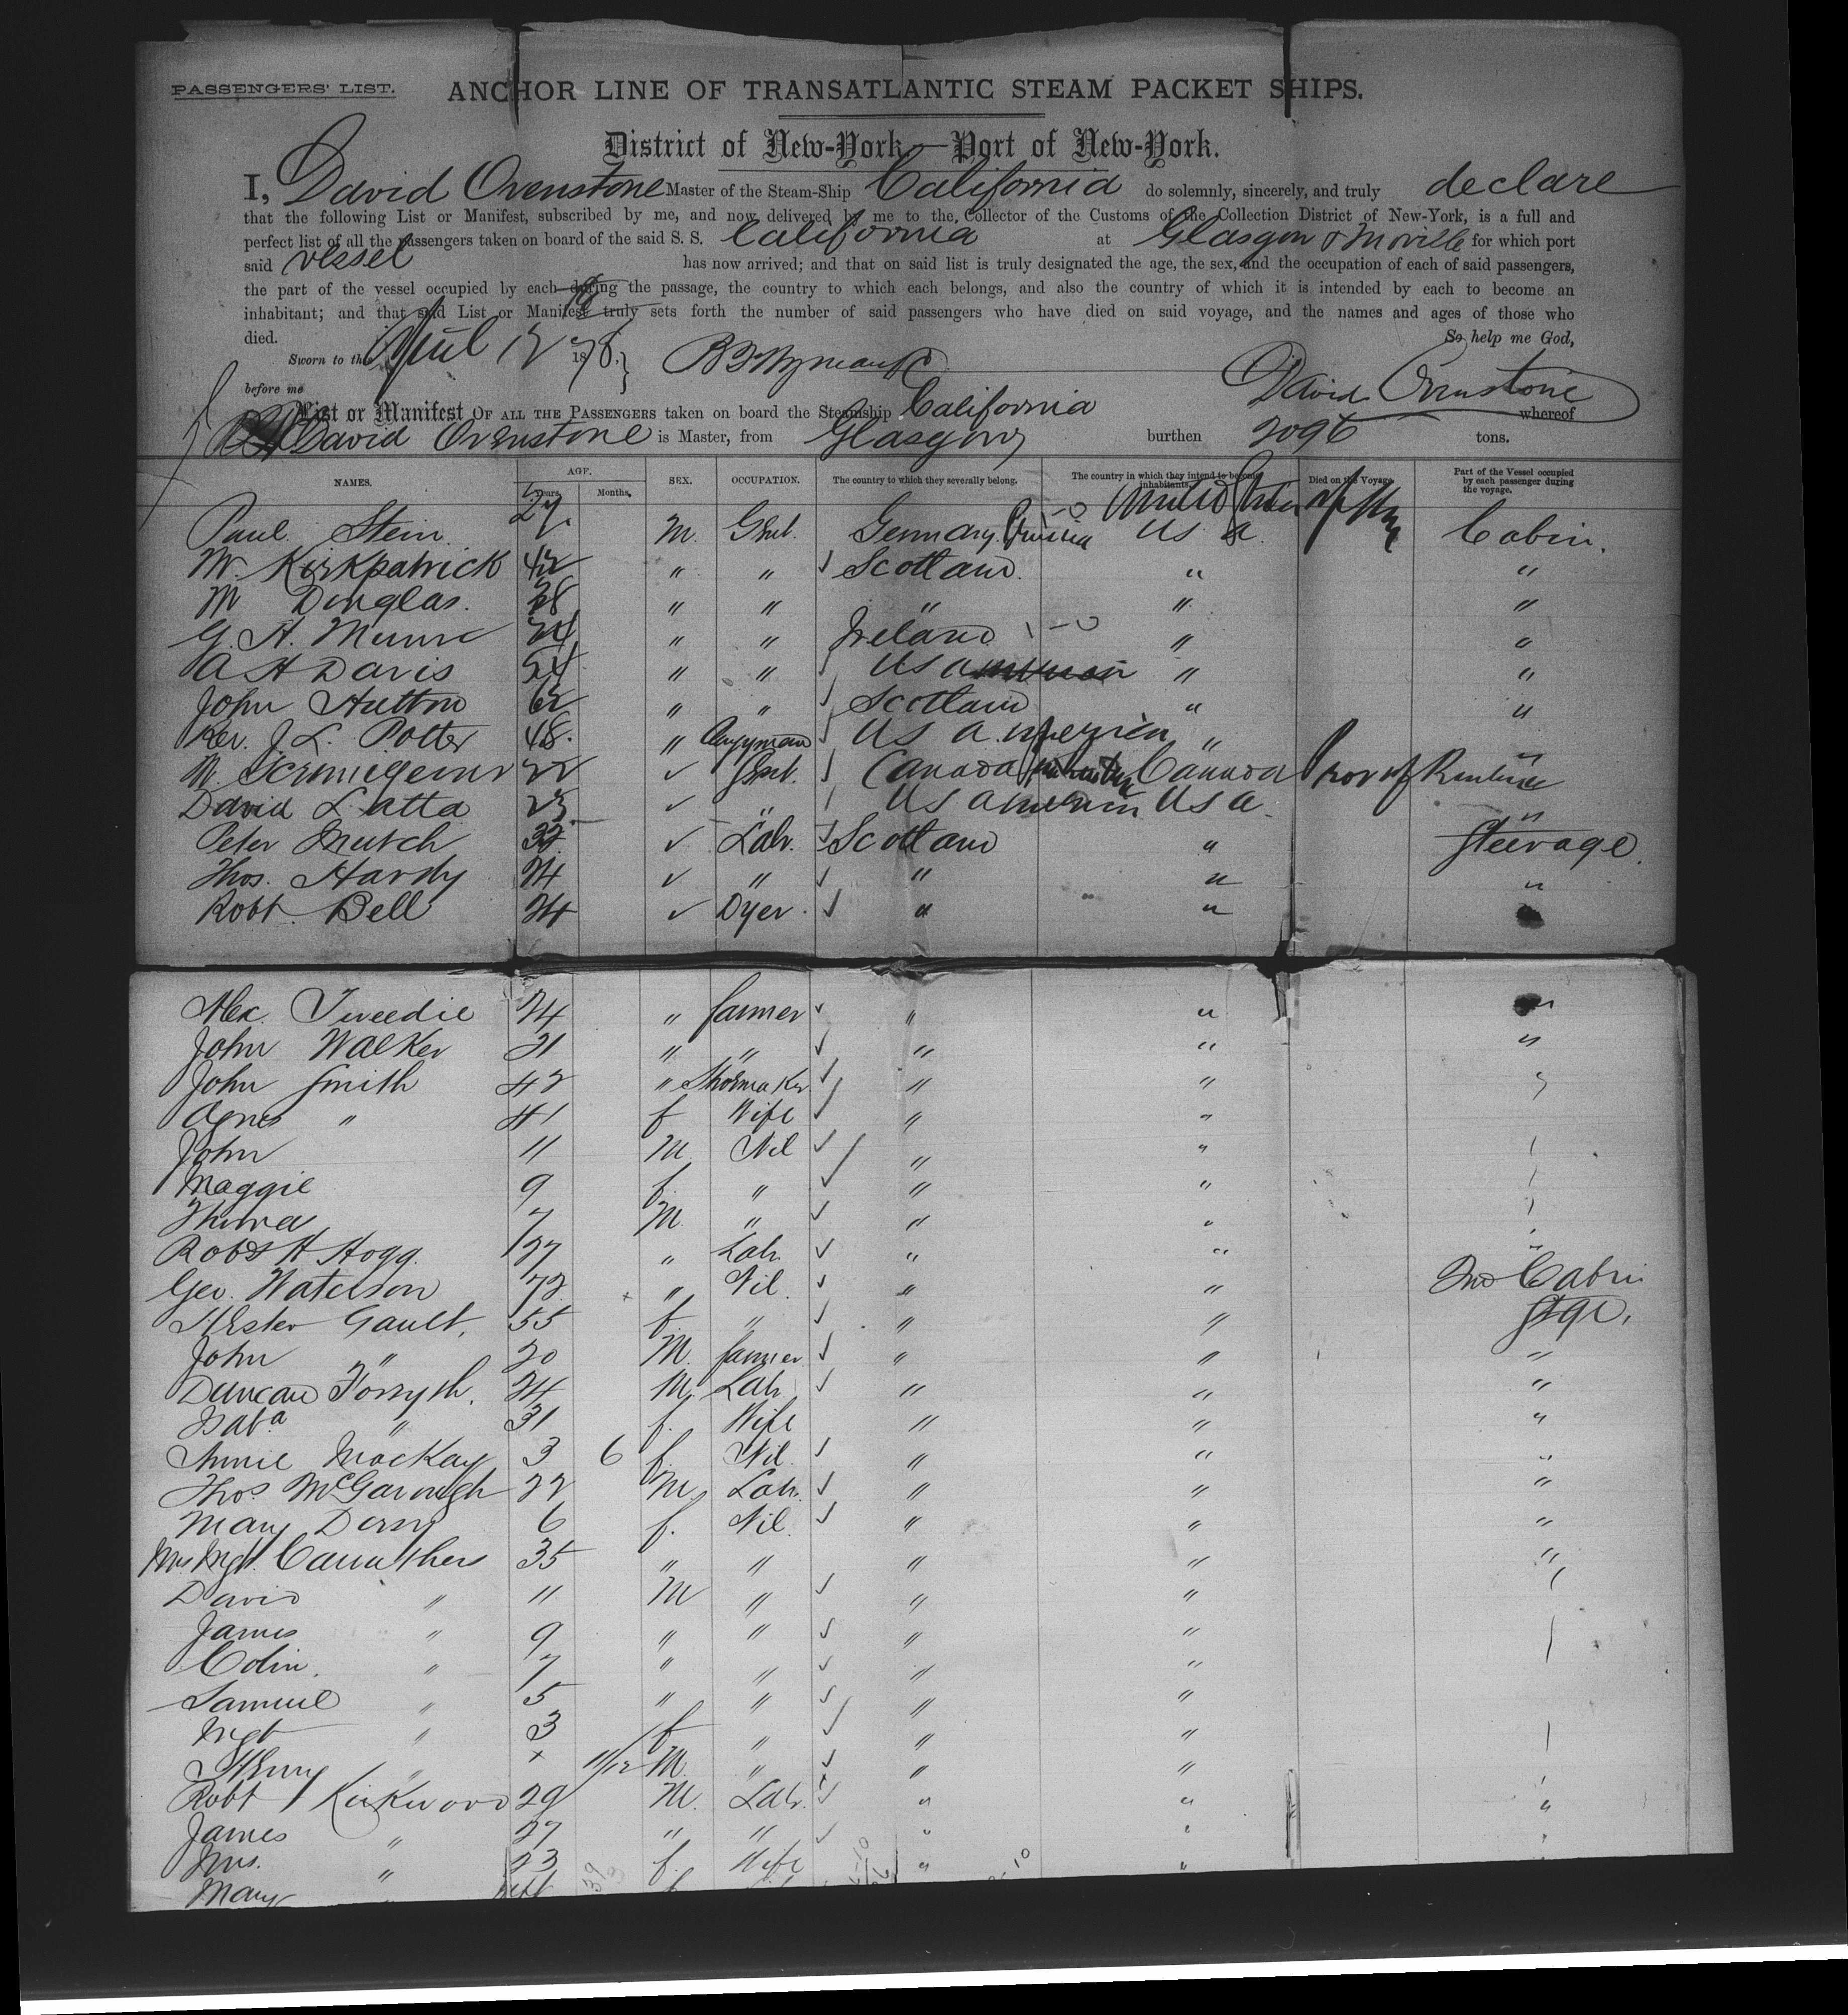 PASSENGERS' LIST.
ANCHOR LINE OF TRANSATLANTIC STEAM PACKET SHIPS.
District of New-York—Port of New-York.
I, David Ovenstone Master of the Steam-Ship California do solemnly, sincerely, and truly declare
that the following List or Manifest, subscribed by me, and now delivered by me to the Collector of the Customs of the Collection District of New-York, is a full and
perfect list of all the passengers taken on board of the said S. S. California at Glasgow & Moville for which port
said vessel has now arrived; and that on said list is truly designated the age, the sex, and the occupation of each of said passengers,
the part of the vessel occupied by each during the passage, the country to which each belongs, and also the country of which it is intended by each to become an
inhabitant; and that said List or Manifest truly sets forth the number of said passengers who have died on said voyage, and the names and ages of those who
died. So help me God,
Sworn to the April 12 1878,
before me David Ovenstone
List or Manifest OF ALL THE PASSENGERS taken on board the Steamship California whereof
David Ovenstone is Master, from Glasgow burthen 2096 tons.
NAMES. AGE. Years. Months. SEX. OCCUPATION. The country to which they severally belong. The country in which they intend to become inhabitants. Died on the Voyage. Part of the Vessel occupied by each passenger during the voyage.
Paul Stein 27 M. Gent. Germany. U S A. Cabin.
M. Kirkpatrick 42 " " Scotland. " "
M Douglas. 38 " " " " "
G. H. Munro 24 " " Ireland " "
A H Davis 54 " " U S " "
John Hutton 62 " " Scotland " "
Rev. J. L. Potter 48. " Clergyman U S A. " "
M. 22 ✓ Gent. Canada Canada "
David Latta 23 ✓ " U S America U S A. "
Peter Mutch 32 ✓ Labr. Scotland " Steerage.
Thos. Hardy 24 ✓ " " " "
Robt. Bell 24 ✓ Dyer. " "
Alex. Tweedie 24 " farmer " " "
John Walker 21 " " " " "
John Smith 42 " Shoemaker " " "
Agnes " 41 f Wife " "
John 11 M Nil " "
Maggie 9 f. " " "
7 M " " "
Robt H Hogg. 27 " Labr. " " "
Geo. Waterson 72 " Nil. " " 2nd Cabin
Hester Gault, 55 f. " " " Stge.
John " 20 M. farmer " " "
Duncan Forsyth. 24 M. Labr. " " "
Isaba " 31 f. Wife " " "
Annie MacKay 3 6 f. Nil. " " "
Thos. McGarough 22 M. Labr. " " "
Mary Derry 6 f. Nil. " " "
Mrs Mgt. Carruthers 35 " " " " "
David " 11 M " " "
James " 9 " " " "
Colin. " 7 " " " "
Samuel " 5 " " " "
Mgt " 3 f " " "
Henry " 11/12 M. " " "
Robt Kirkwood 29 M. Labr. " " "
James " 27 " " " "
Mrs. " 23 f. Wife " "
Mary "